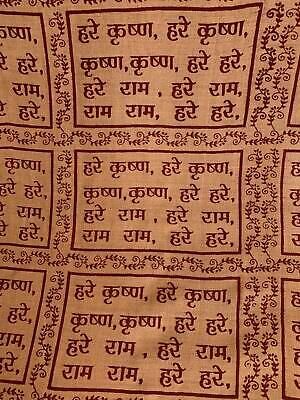 हरे कृष्ण, हरे कृष्ण,
कृष्ण,कृष्ण, हरे हरे,
हरे राम , हरे राम,
राम राम, हरे हरे,
कृष्ण, हरे कृष्ण,
कृष्ण,कृष्ण, हरे हरे,
हरे राम , हरे राम,
राम राम, हरे हरे,
हरे कृष्ण, हरे कृष्ण,
कृष्ण,कृष्ण, हरे हरे,
हरे राम , हरे राम,
राम राम, हरे हरे,